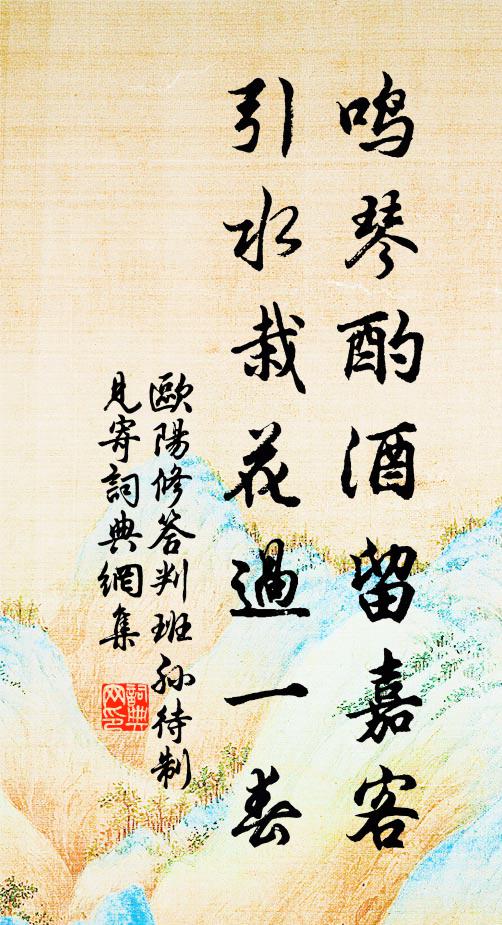 鸣琴酌酒留嘉客
引水栽花過一春
歐陽修答判班孙待制
見寄詞典網集
詞典网印